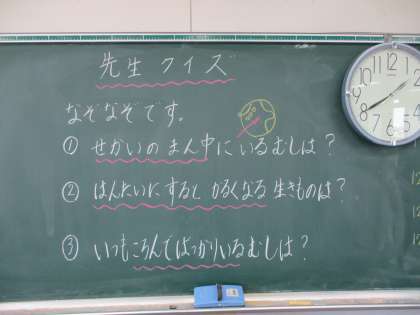 先生クイズ
なぞなぞです。
① せかいのまん中にいるむしは?
② はんたいにするとかるくなる生きものは?
③ いつもころんでばっかりいるむしは?
12
11
10
9
8
7
6
5
4
3
2
1